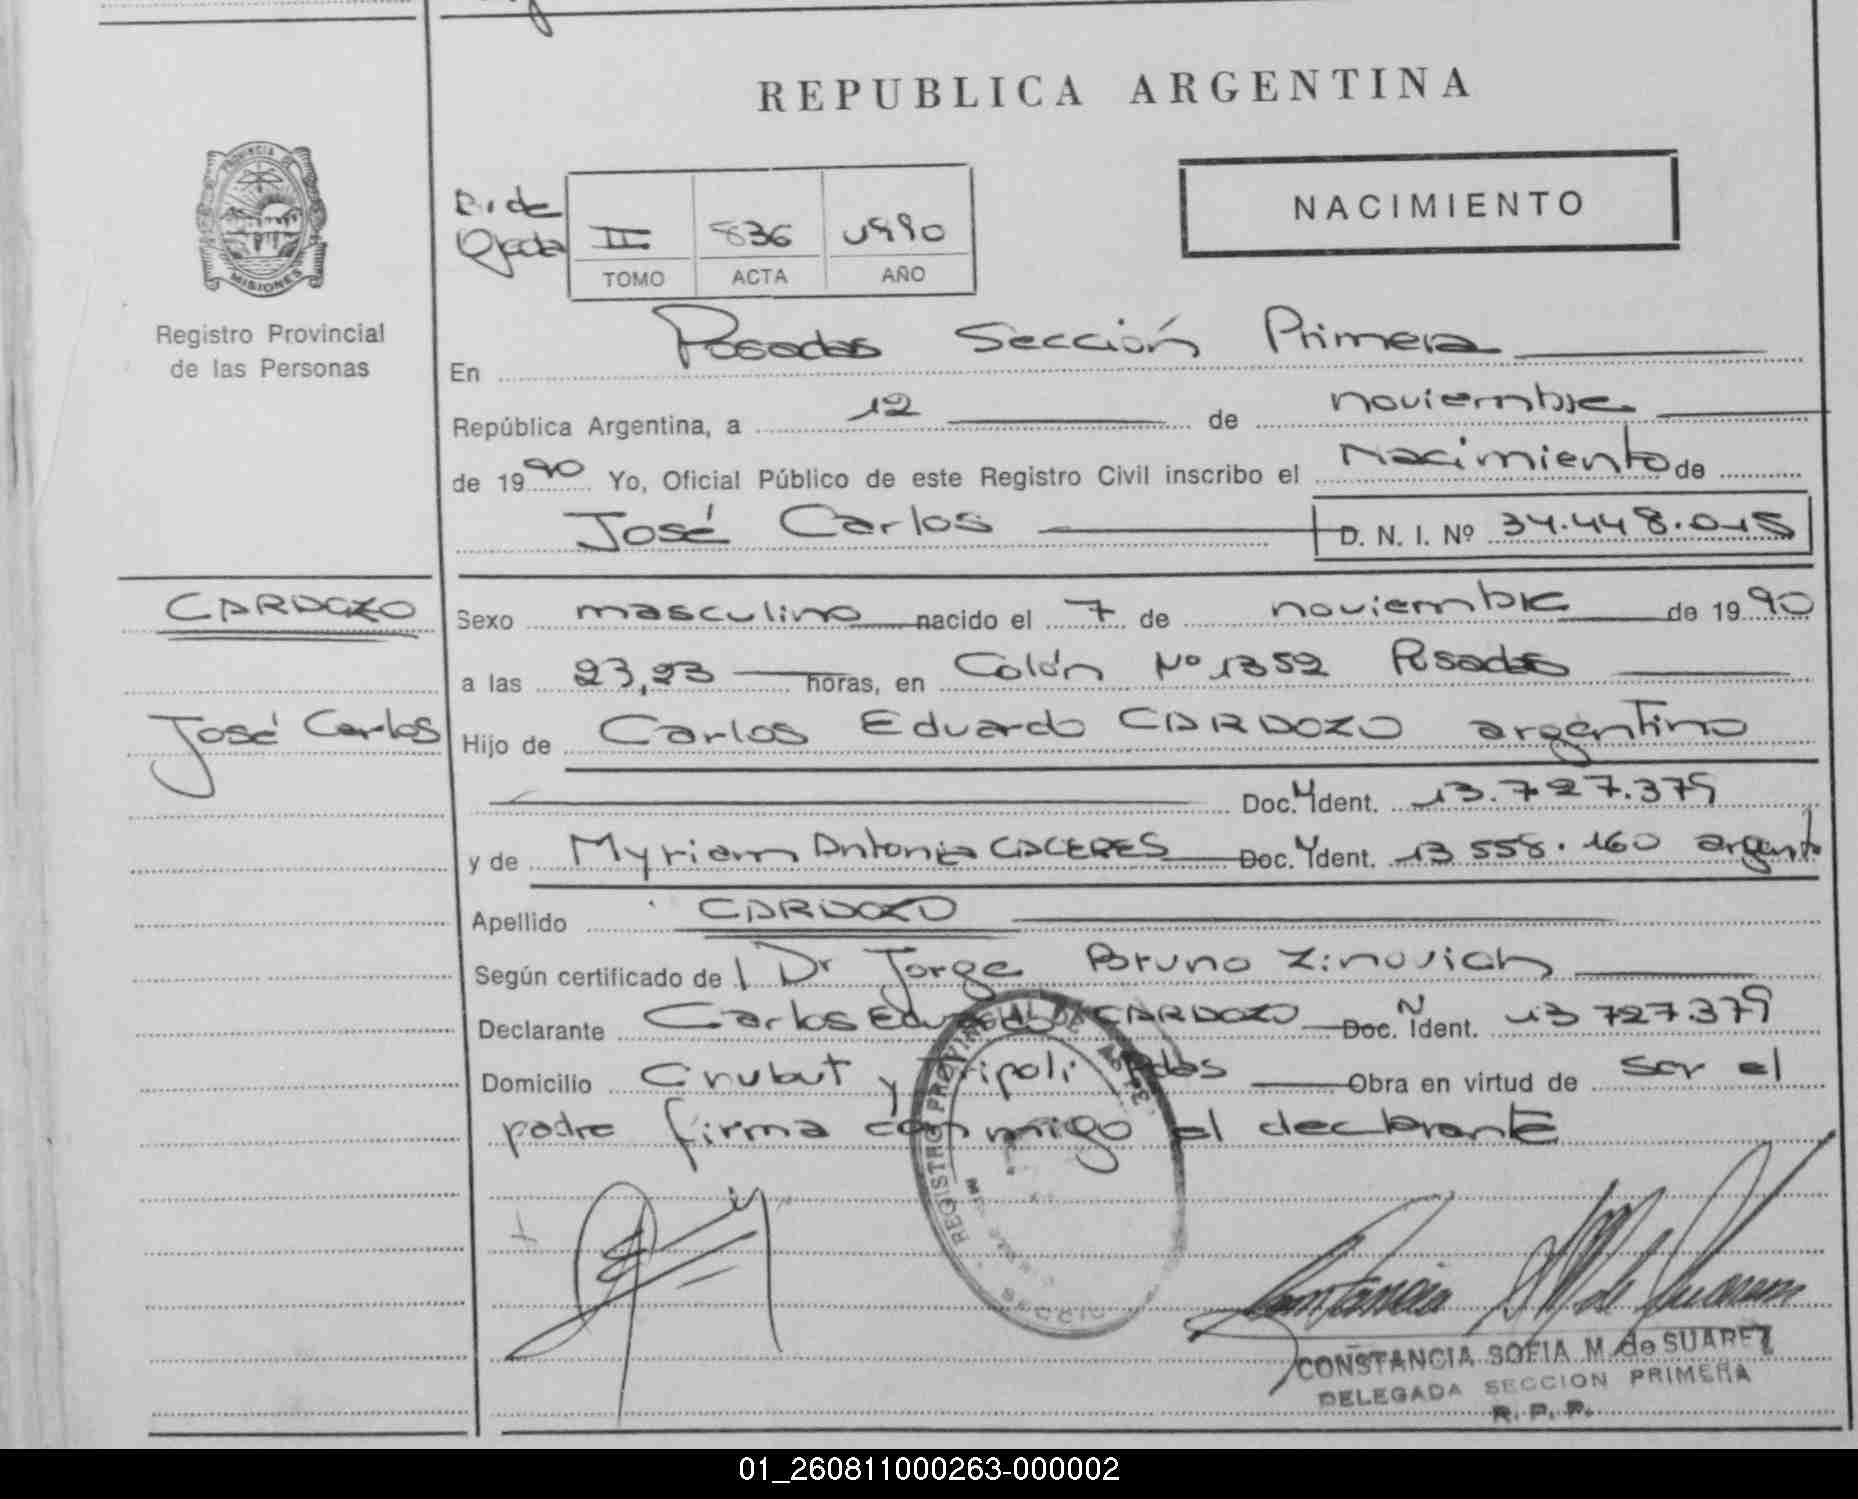 REPUBLICA ARGENTINA
PROVINCIA
MISIONES
Registro Provincial
de las Personas
II 836 1990
TOMO ACTA AÑO
NACIMIENTO
En Posadas Sección Primera
República Argentina, a 12 de noviembre
de 1990 Yo, Oficial Público de este Registro Civil inscribo el Nacimiento de
José Carlos D. N. I. Nº 34.448.015
CARDOZO
José Carlos
Sexo masculino nacido el 7 de noviembre de 1990
a las 23,23 horas, en Colón Nº 1352 Posadas
Hijo de Carlos Eduardo CARDOZO argentino
Doc. Ident. 13.727.379
y de Myriam Antonia CACERES Doc. Ident. 13 558.160
Apellido CARDOZO
Según certificado de l Dr Jorge Bruno Zinovich
Declarante Carlos Eduardo CARDOZO Doc. Ident. 13 727.379
Domicilio y Tripoli Pdas Obra en virtud de ser el
padre firma conmigo el declarante
REGISTRO PROVINCIAL DE LAS
CONSTANCIA SOFIA M. de SUAREZ
DELEGADA SECCION PRIMERA
R. P. P.
01_260811000263-000002